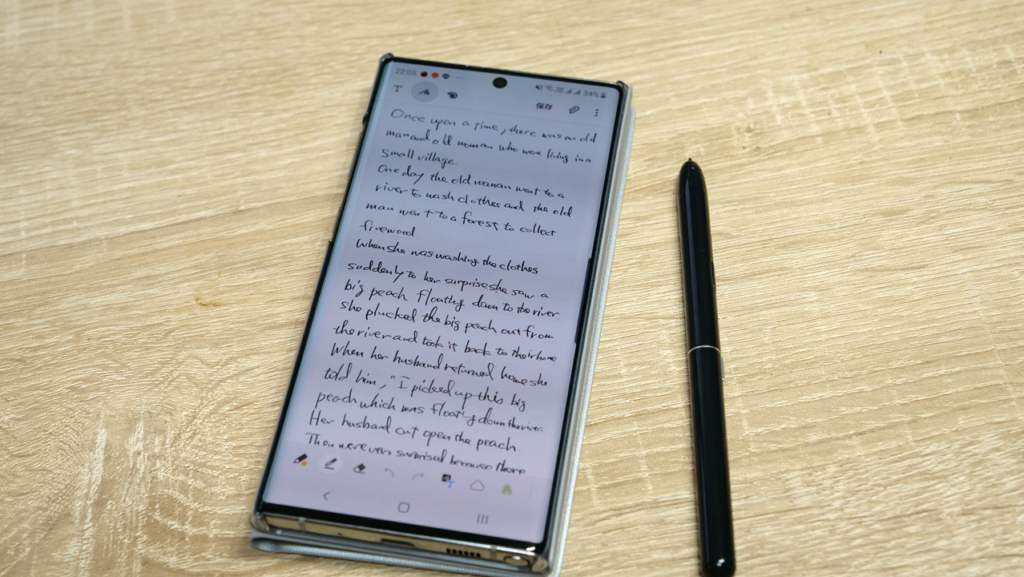 22:05
34%
T
保存
Once upon a time, there was an old
man and old woman who were living in a
small village.
One day the old woman went to a
river to wash clothes and the old
man went to a forest to collect
firewood
When she was washing the clothes
suddenly to her surprise she saw a
big peach floating down to the river
she plucked the big peach out from
the river and took it back to their home
When her husband returned home she
told him, "I picked up this big
peach which was floating down the river.
Her husband cut open the peach.
They were very surprised because there